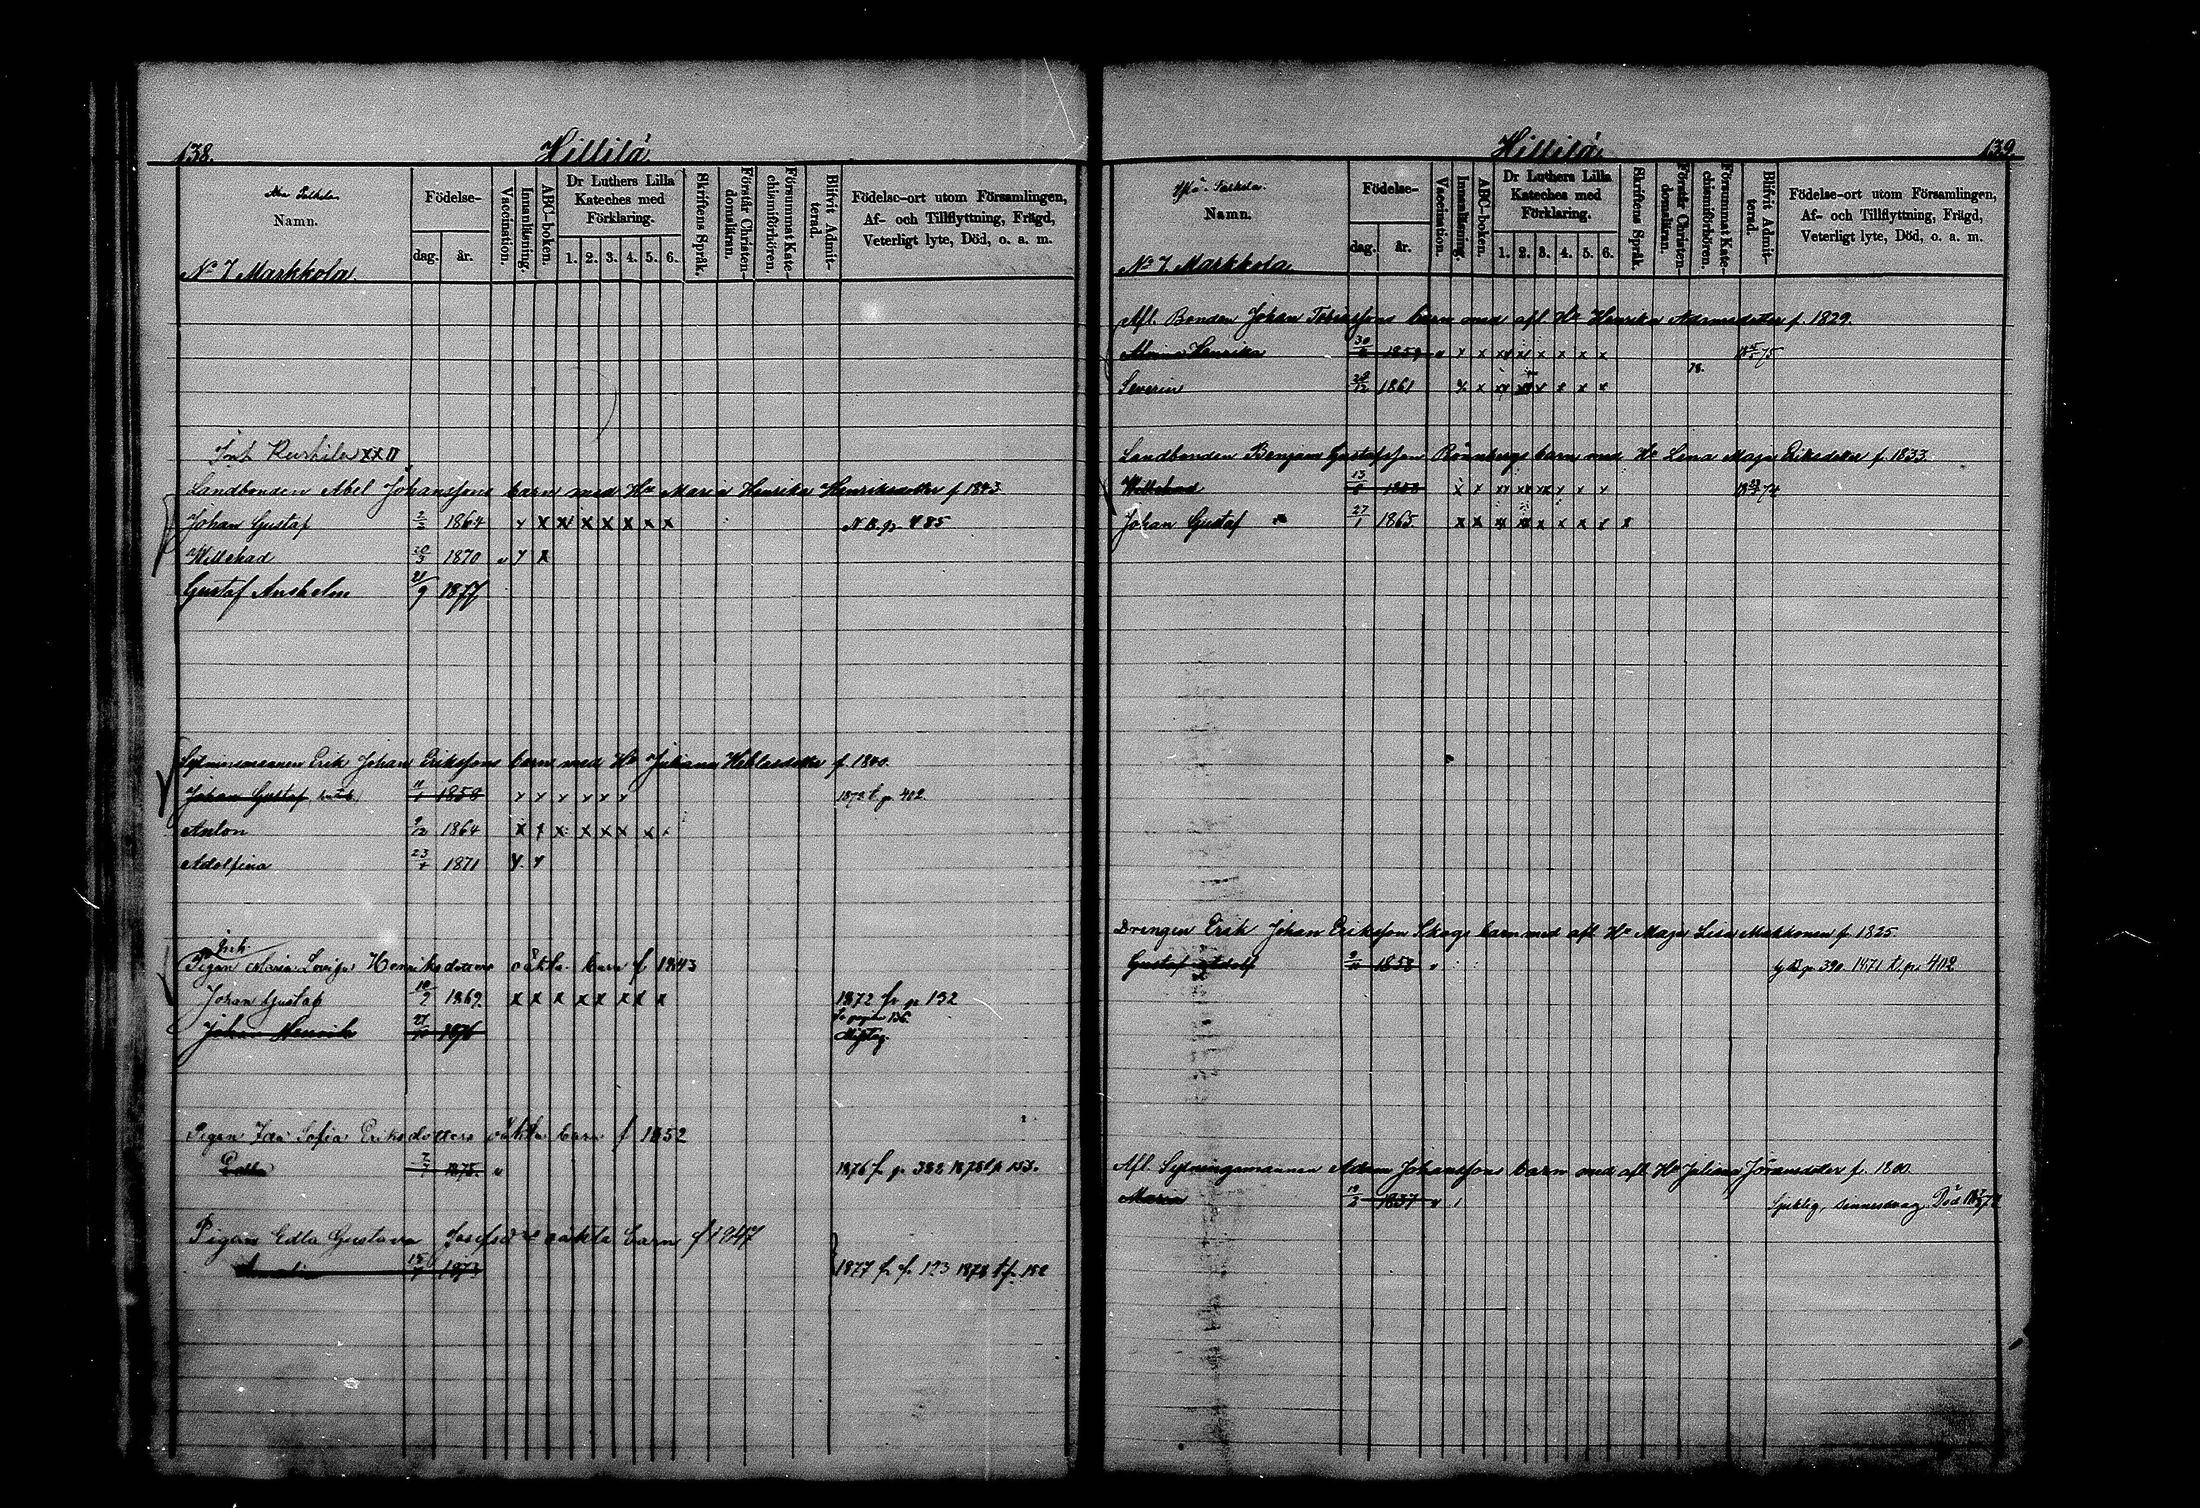 138. Hillilä
Namn.
Födelse-
dag. år.
Vaccination.
Innanläsning.
ABC-boken.
Dr Luthers Lilla Kateches med Förklaring.
1. 2. 3. 4. 5. 6.
Skriftens Språk.
Förstår Christendomsläran.
Försummat Katechismiförhören.
Blifvit Admitterad.
Födelse-ort utom Församlingen,
Af- och Tillflyttning, Frägd,
Veterligt lyte, Död, o. a. m.
No 7 Markkola
Landbonden Abel Johanssons barn med Hu Maria Henrika Henriksdotter f 1843
Johan Gustaf 2/2 1864 x x x x x x x x N.B. p. 485
Willehad 20/3 1870 " y x
Gustaf Anshelm 21/9 1877
Sytningsmannen Erik Johan Erikssons barn med Hu Juliana f. 1840.
Johan Gustaf 11/1 1858 x x x x x x 1873 t. p. 402.
Anton 9/12 1864 x x x x x x x x
Adolfina 23/1 1871 y y
Inh.
Pigan Maria Lovisa Henriksdotters oäkta barn f 1843
Johan Gustaf 10/9 1869. x x x x x x x x 1872 fr p 132
Johan Henrik 27/10 1876
Pigan Ida Sofia Eriksdotters oäkta barn f 1852
Edla 7/1 1875. " 1876 f. p. 382 1878 t p 153.
Pigan Edla Gustava oäkta barn f 1847
1873 1877 fr p. 123 1878 t p. 152
Hillilä 139.
Namn.
Födelse-
dag. år.
Vaccination.
Innanläsning.
ABC-boken.
Dr Luthers Lilla Kateches med Förklaring.
1. 2. 3. 4. 5. 6.
Skriftens Språk.
Förstår Christendomsläran.
Försummat Katechismiförhören.
Blifvit Admitterad.
Födelse-ort utom Församlingen,
Af- och Tillflyttning, Frägd,
Veterligt lyte, Död, o. a. m.
No 7 Markkola
Afl. Bonden Johan Tobiassons barn med afl. Hu Henrika Adamsdotter f. 1829.
Henrika 1859 " x x x x x x x x
78.
Severin 1861 x x x x x x x x
Landbonden Benjam Gustafsson Rönnbergs barn med Hu Lena Maja Eriksdotter f. 1833.
Willehad 1858 x x x x x x x x
Johan Gustaf 27/1 1865 x x x x x x x x x
Drengen Erik Johan Eriksson Skogs barn med afl Hu Maja Lisa Makkonen f. 1825
Gustaf Adolf 9/10 1858 " p. 390. 1871 t. p. 402
Afl. Sytningsmannen Adam Johanssons barn med afl. Hu Juliana Jöransdotter f. 1800.
Maria 19/2 1837 " Sjuklig, sinnessvag. Död